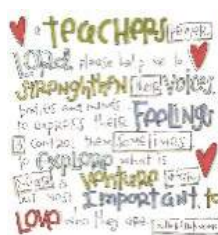 a teachers prayer
LORD, please help me to
strenghthen their voices,
bodies and minds
to express their Feelings
& control them sometimes
to explore what is
venture
Important. to
Love who they are